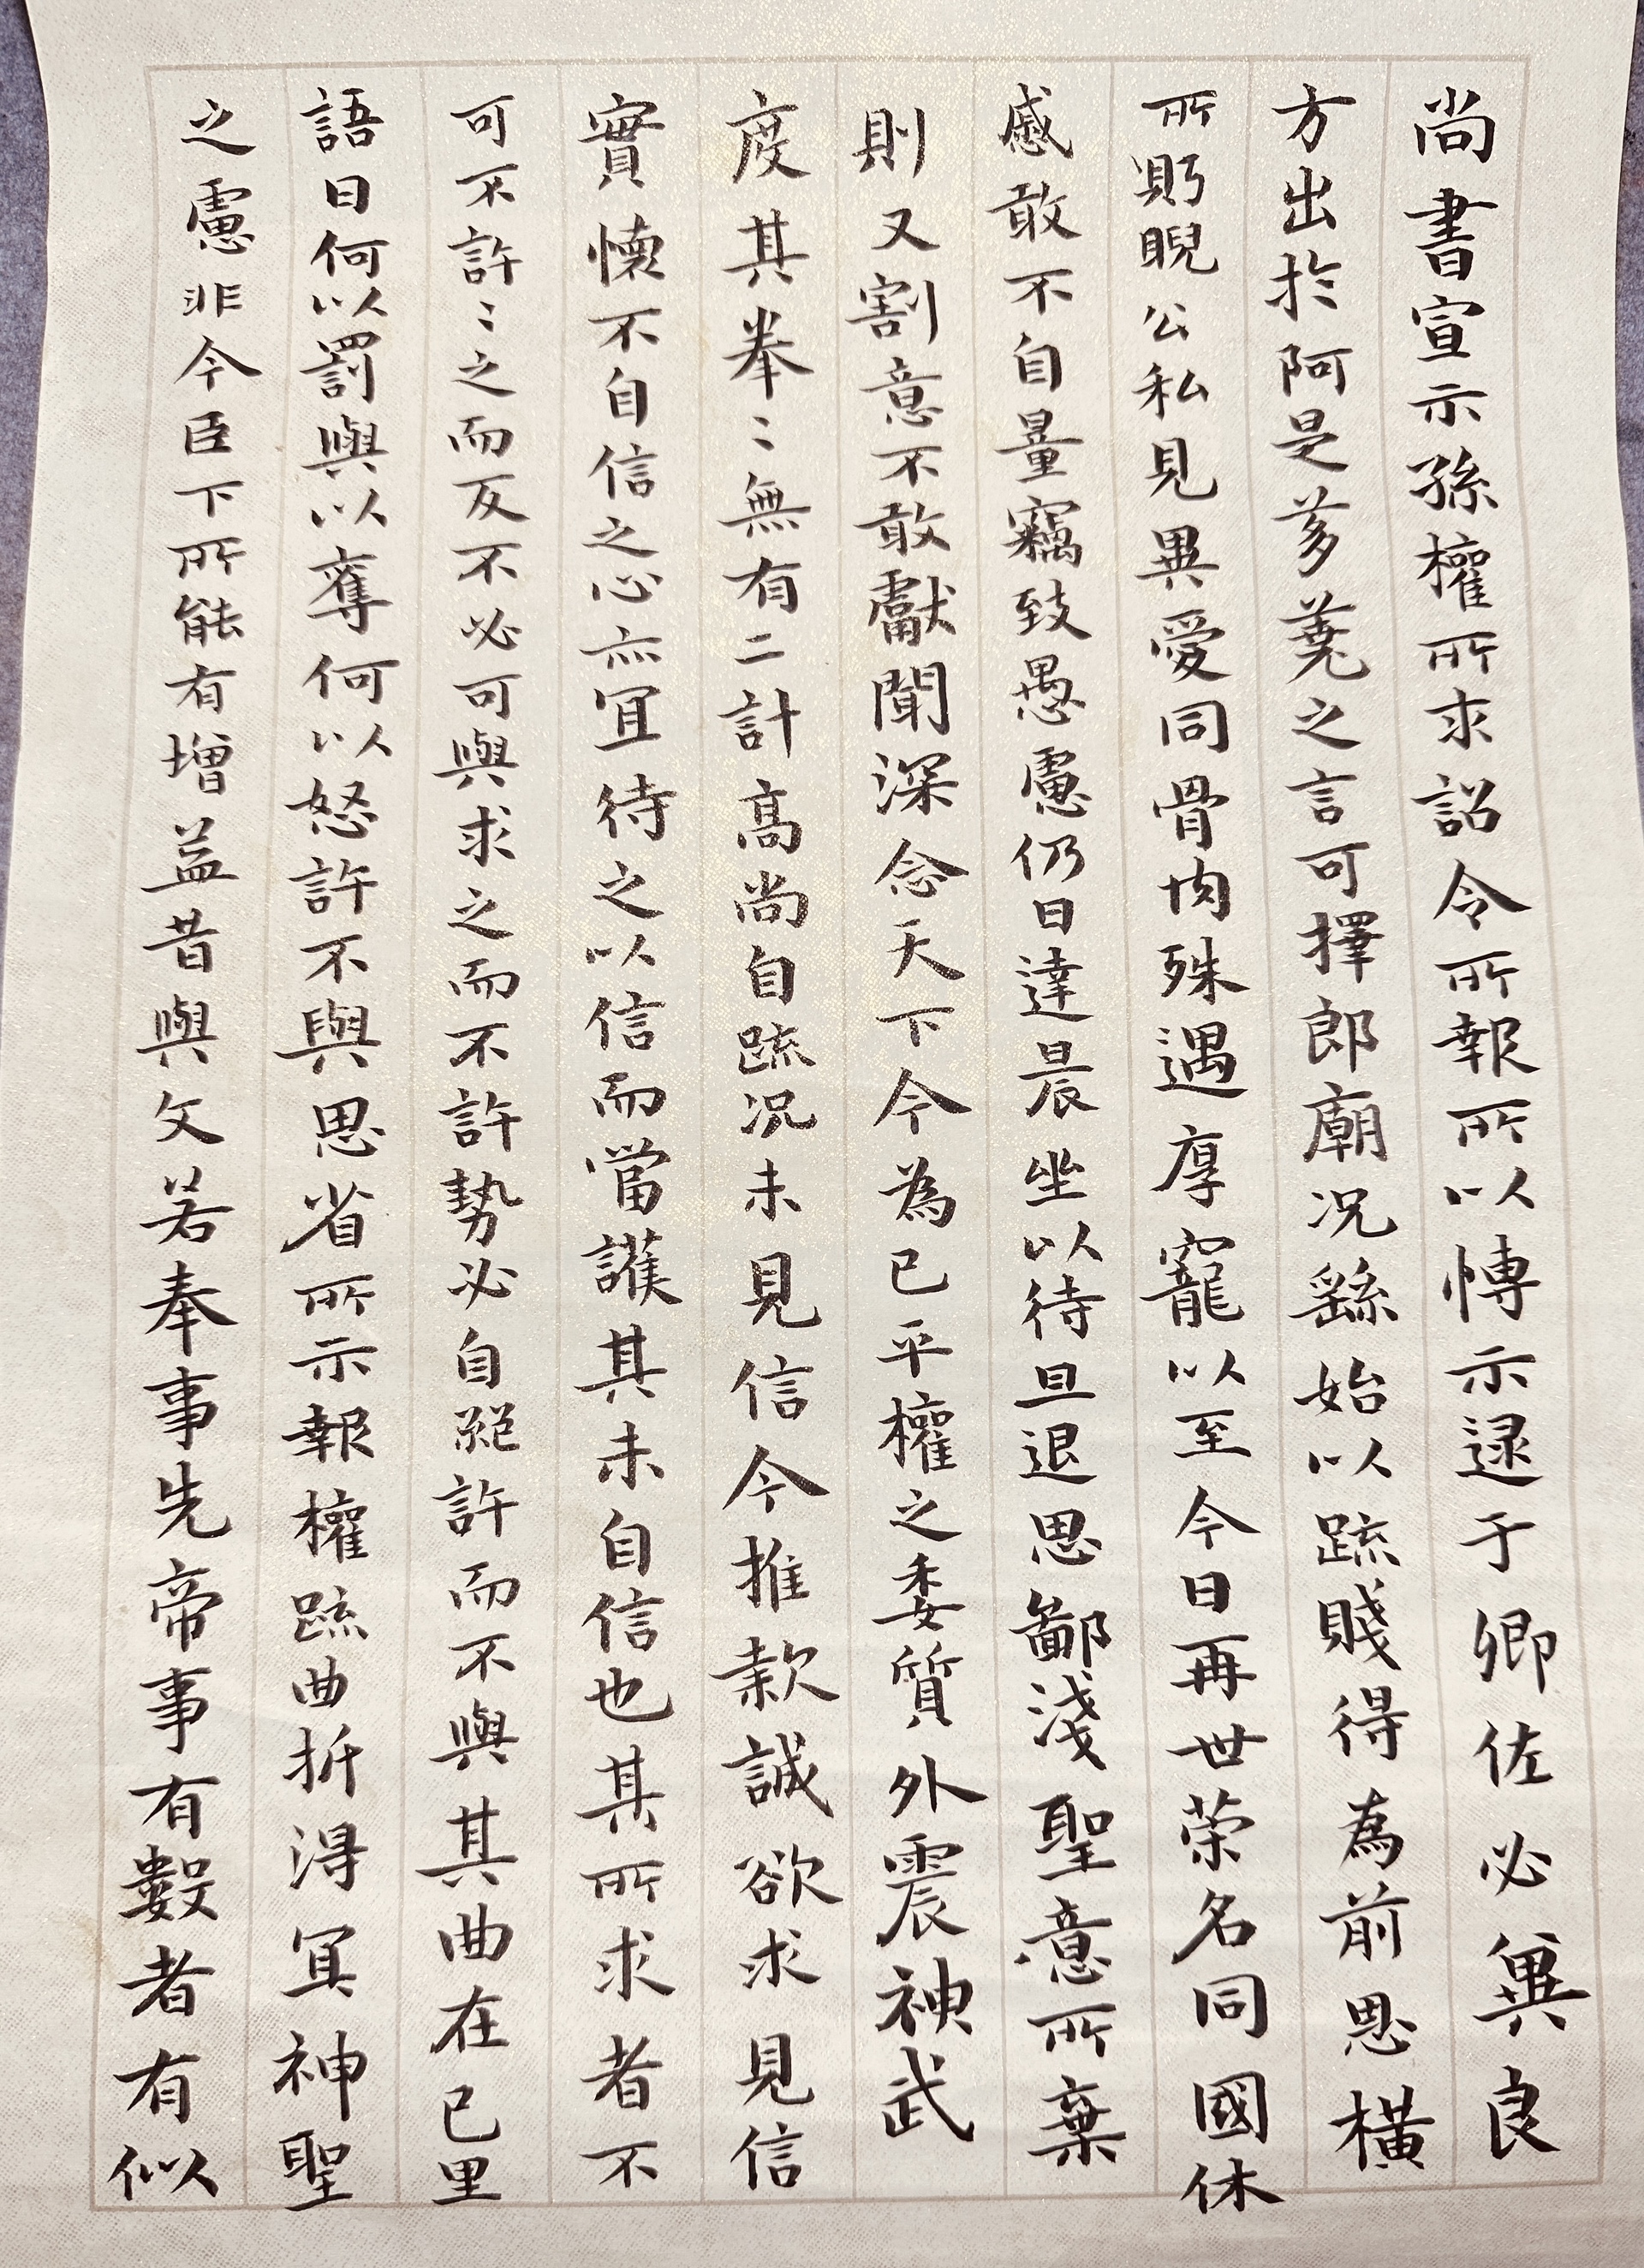 尚書宣示孫權所求詔令所報所以博示逮于卿佐必兾良
方出於阿是蒭蕘之言可擇郎廟況繇始以疏賤得為前恩橫
所䀩睨公私見異愛同骨肉殊遇厚寵以至今日再世荣名同國休
慼敢不自量竊致愚慮仍日達晨坐以待旦退思鄙淺聖意所棄
則又割意不敢獻聞深念天下今為已平權之委質外震神武
度其拳〻無有二計高尚自疏況未見信今推款誠欲求見信
實懷不自信之心亦宜待之以信而當護其未自信也其所求者不
可不許〻之而反不必可與求之而不許勢必自絕許而不與其曲在已里
語曰何以罰與以奪何以怒許不與思省所示報權疏曲折得冝神聖
之慮非今臣下所能有增益昔與文若奉事先帝事有數者有似